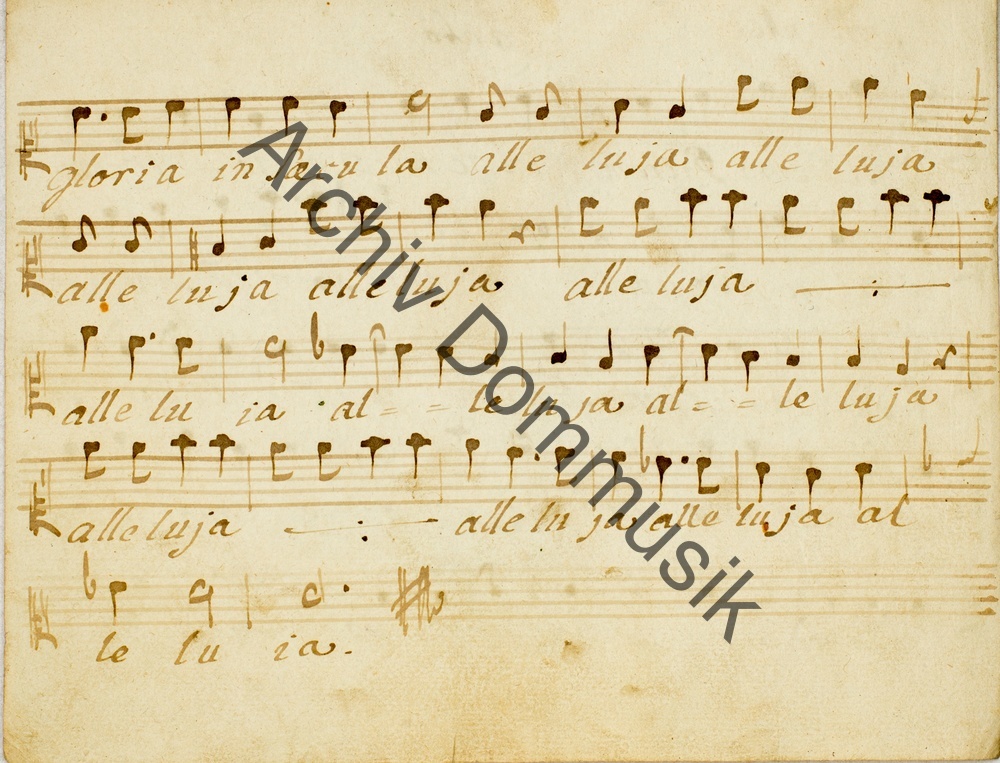 gloria in sæcu la alle luja alle luja
alle luja alleluja alle luja
alle lu ia al = = le lu ja al = = le luja
alleluja alle lu ja alle luja al
le lu ia.
Archiv Dommusik